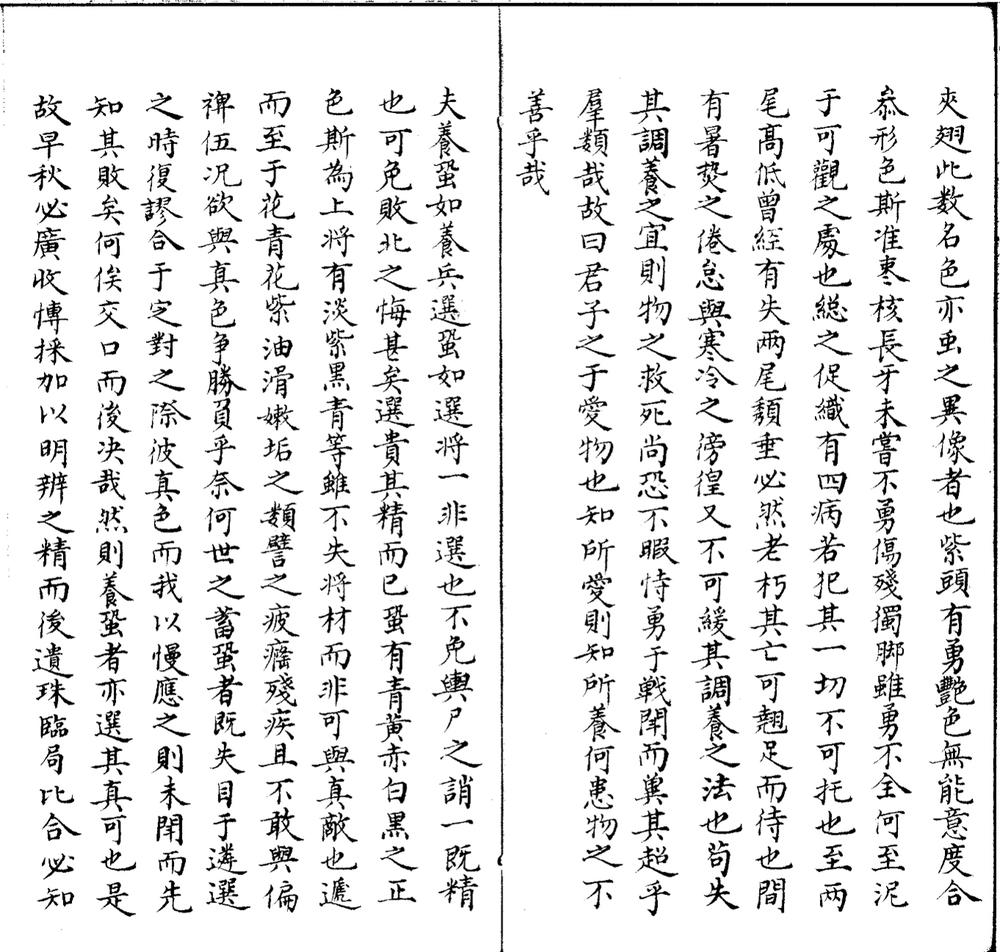 夾翅此数名色亦虫之異像者也紫頭有勇艷色無能意度合
叅形色斯准枣核長牙未嘗不勇傷殘獨脚雖勇不全何至泥
于可觀之處也総之促織有四病若犯其一切不可托也至两
尾高低曾經有失两尾頽垂必然老朽其亡可翹足而待也間
有暑熒之倦怠與寒冷之傍徨又不可緩其調養之法也苟失
其調養之宜則物之救死尚恐不暇恃勇于戦閗而兾其超乎
羣類哉故曰君子之于愛物也知所愛則知所養何患物之不
善乎哉
夫養蛩如養兵選蛩如選将一非選也不免輿尸之誚一既精
也可免敗北之悔甚矣選貴其精而已蛩有青黄赤白黒之正
色斯為上将有淡紫黒青等雖不失将材而非可與真敵也遞
而至于花青花紫油滑嫩垢之類譬之疲癃殘疾且不敢與偏
裨伍况欲與真色争勝負乎奈何世之蓄蛩者既失目于遴選
之時復謬合于定對之際彼真色而我以慢應之則未閗而先
知其敗矣何俟交口而後决哉然則養蛩者亦選其真可也是
故早秋必廣收愽採加以明辨之精而後遺珠臨局比合必知